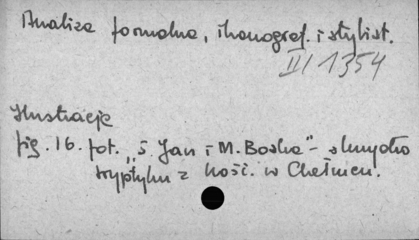 Analiza formalna, ikonograf. i stylist.
III 1354
Ilustracje
fig. 16. fot. „Ś. Jan i M. Boska" - skrzydło
tryptyku z kośc. w Chełmcu.